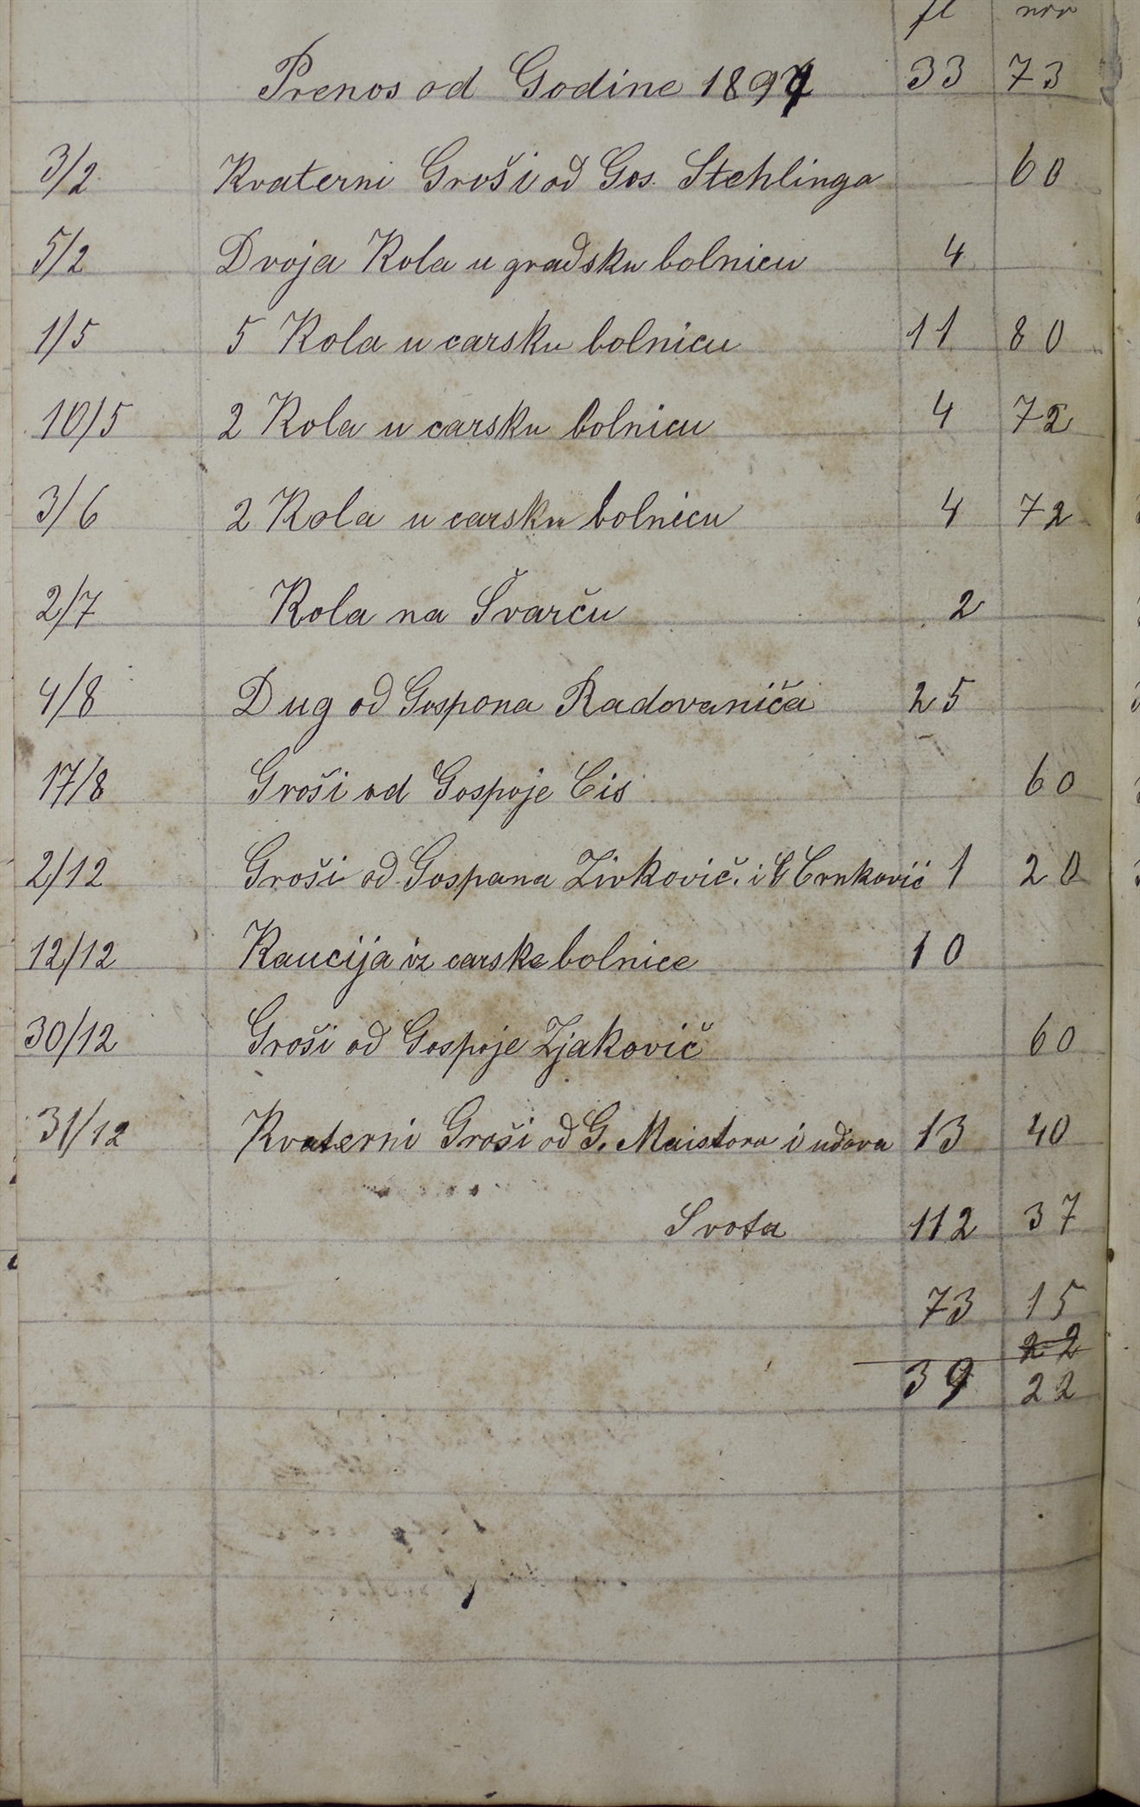 fl nvr
Prenos od Godine 1894 33 73
3/2 Kvaterni Groši od Gos. Stehlinga 60
5/2 Dvoja Kola u gradsku bolnicu 4
1/5 5 Kola u carsku bolnicu 11 80
10/5 2 Kola u carsku bolnicu 4 72
3/6 2 Kola u carsku bolnicu 4 72
2/7 Kola na Švarču 2
4/8 Dug od Gospona Radovaniča 25
17/8 Groši od Gospoje Cis 60
2/12 Groši od Gospana Zivkovič. i G Crnković 1 20
12/12 Kaucija iz carske bolnice 10
30/12 Groši od Gospoje Zjakovič 60
31/12 Kvaterni Groši od G. Maistora i udova 13 40
Svota 112 37
73 15
22
39 22